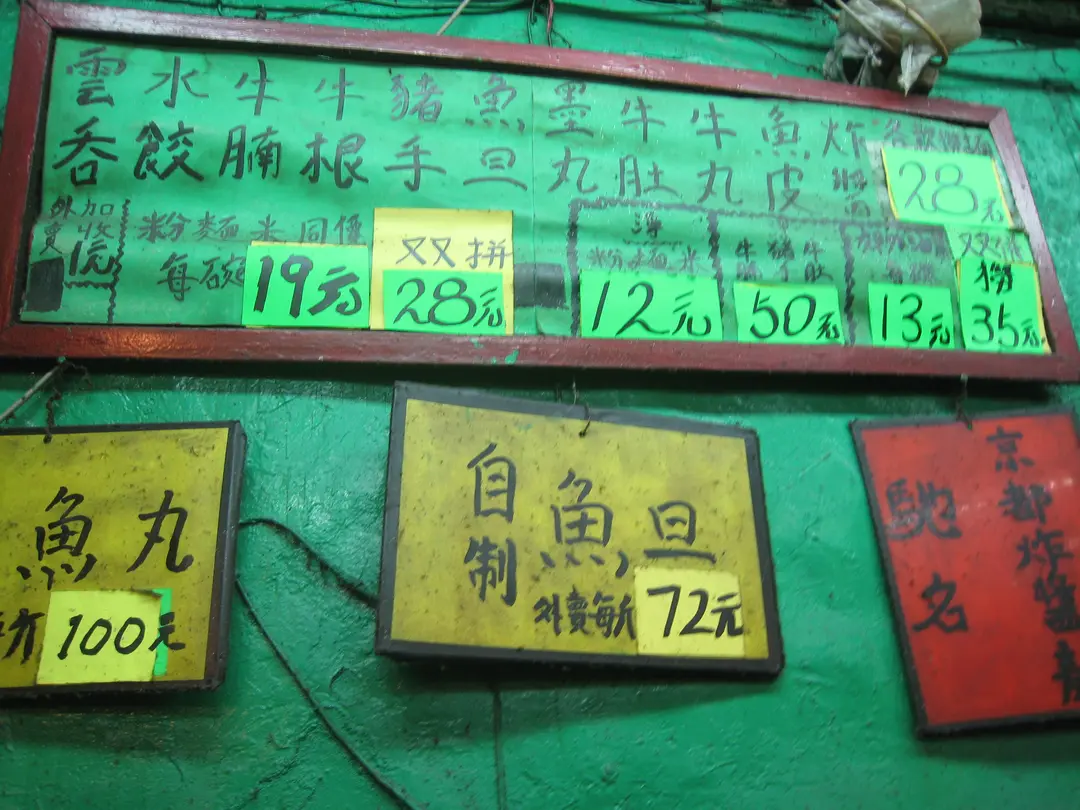 雲吞
水餃
牛腩
牛根
豬手
魚旦
墨丸
牛肚
牛丸
魚皮
炸醬
28元
外賣
加收
1元
粉麵米同價
每碗
19元
双拼
28元
淨
粉麵米
12元
牛腩
豬手
牛肚
50元
13元
双
拼
35元
魚丸
斤
100元
自制
魚旦
外賣每斤
72元
京都炸醬
馳名